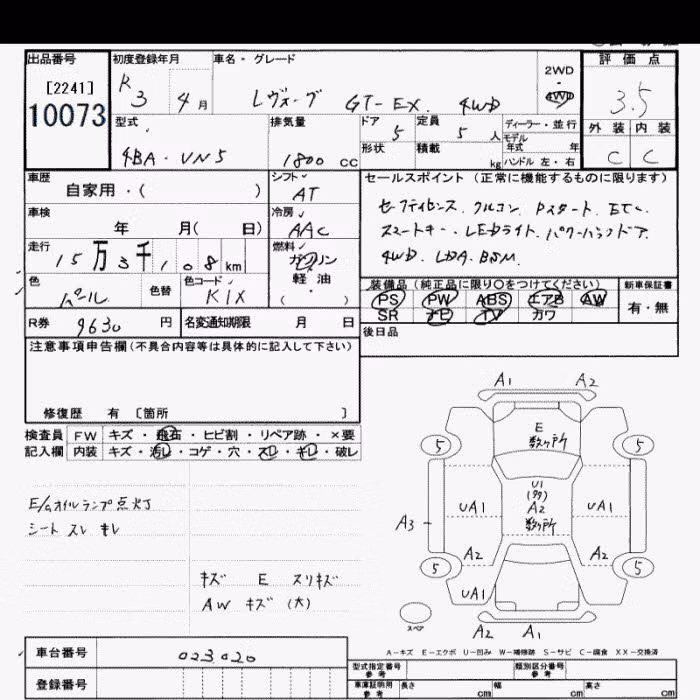 出品番号 初度登録年月 車名・グレード 2WD ・ 4WD 評価点
[2241] R 3 4月 レヴォーグ GT-EX. 4WD 3.5
10073 型式 排気量 ドア 定員 ディーラー・並行 外装 内装
4BA・VN5 1800 CC 5 5 人 モデル年式 年 C C
形状 積載 kg ハンドル 左・右
車歴 シフト セールスポイント(正常に機能するものに限ります)
自家用・( ) AT
車検 冷房 セーフティセンス. クルコン. Pスタート. ETC.
年 月( 日) AAC スマートキー. LEDライト. パワーバックドア.
走行 燃料 4WD. LDA. BSM.
15万3千108km ガソリン
軽油
・( )
色 色替 色コード 装備品(純正品に限り〇をつけてください) 新車保証書
パール K1X PS PW ABS エアB AW 有・無
R券 9630 円 名変通知期限 月 日 SR ナビ TV カワ
注意事項申告欄(不具合内容等は具体的に記入して下さい) 後日品
修復歴 有 〔箇所 〕
検査員 FW キズ・飛石・ヒビ割・リペア跡・×要
記入欄 内装 キズ・汚レ・コゲ・穴・スレ・キレ・破レ
E/Gオイルランプ点灯
シート スレ キレ
キズ E スリキズ
AW キズ (大)
A1 A2
E
数ヶ所
5 5
U1
UA1 A2 UA1
数ヶ所
A3
A2 A2
5 5
UA1
スペア
A2 A1
A-キズ E-エクボ U-凹み W-補修跡 S-サビ C-腐食 XX-交換済
車台番号 023020
登録番号
型式指定番号 参考 類別区分番号 参考
車庫証明用 参考 長さ cm 幅 cm 高さ cm